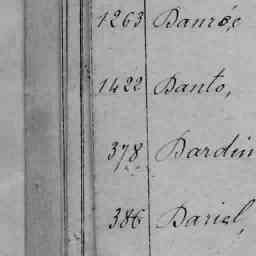 1263 Danrée
1422 Danto,
378 Dardin
386 Dariel,